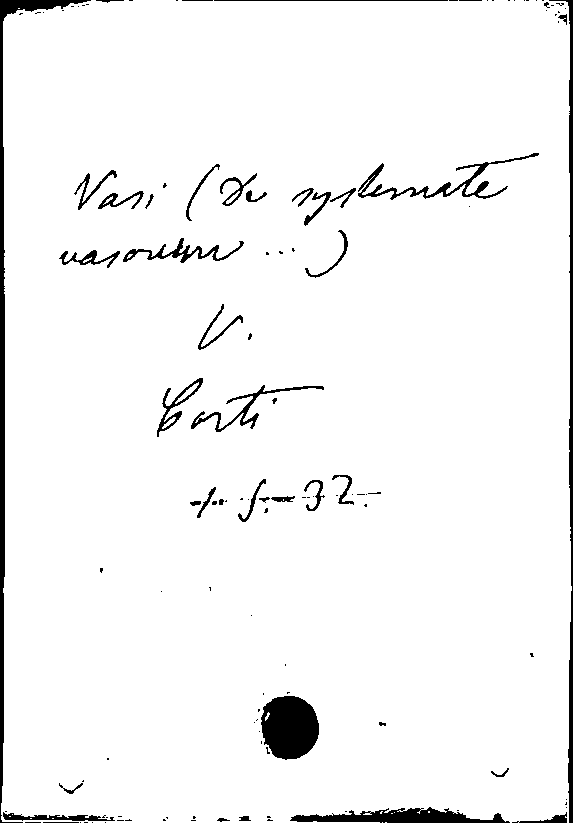 Vasi (De systemate
vasorum ...)
V.
Corti